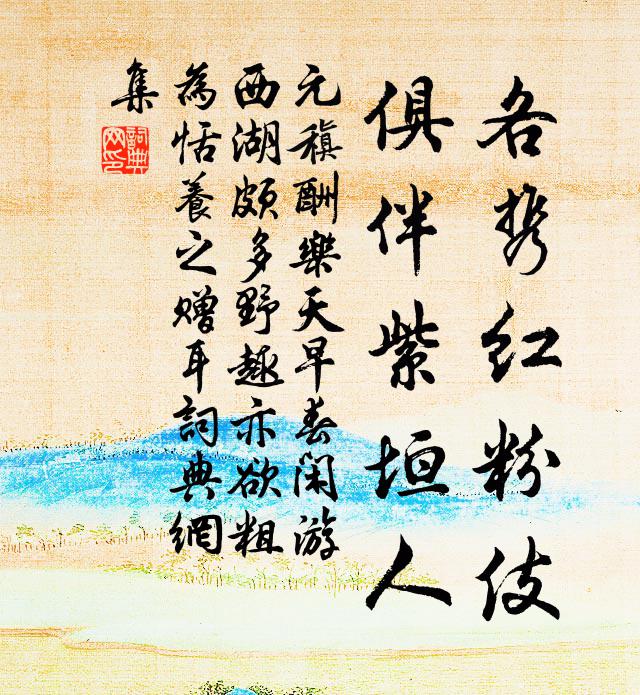 各携红粉伎
俱伴紫垣人
元稹酬樂天早春闲游
西湖颇多野趣亦欲粗
為恬養之贈耳詞典網
集
詞典
网印